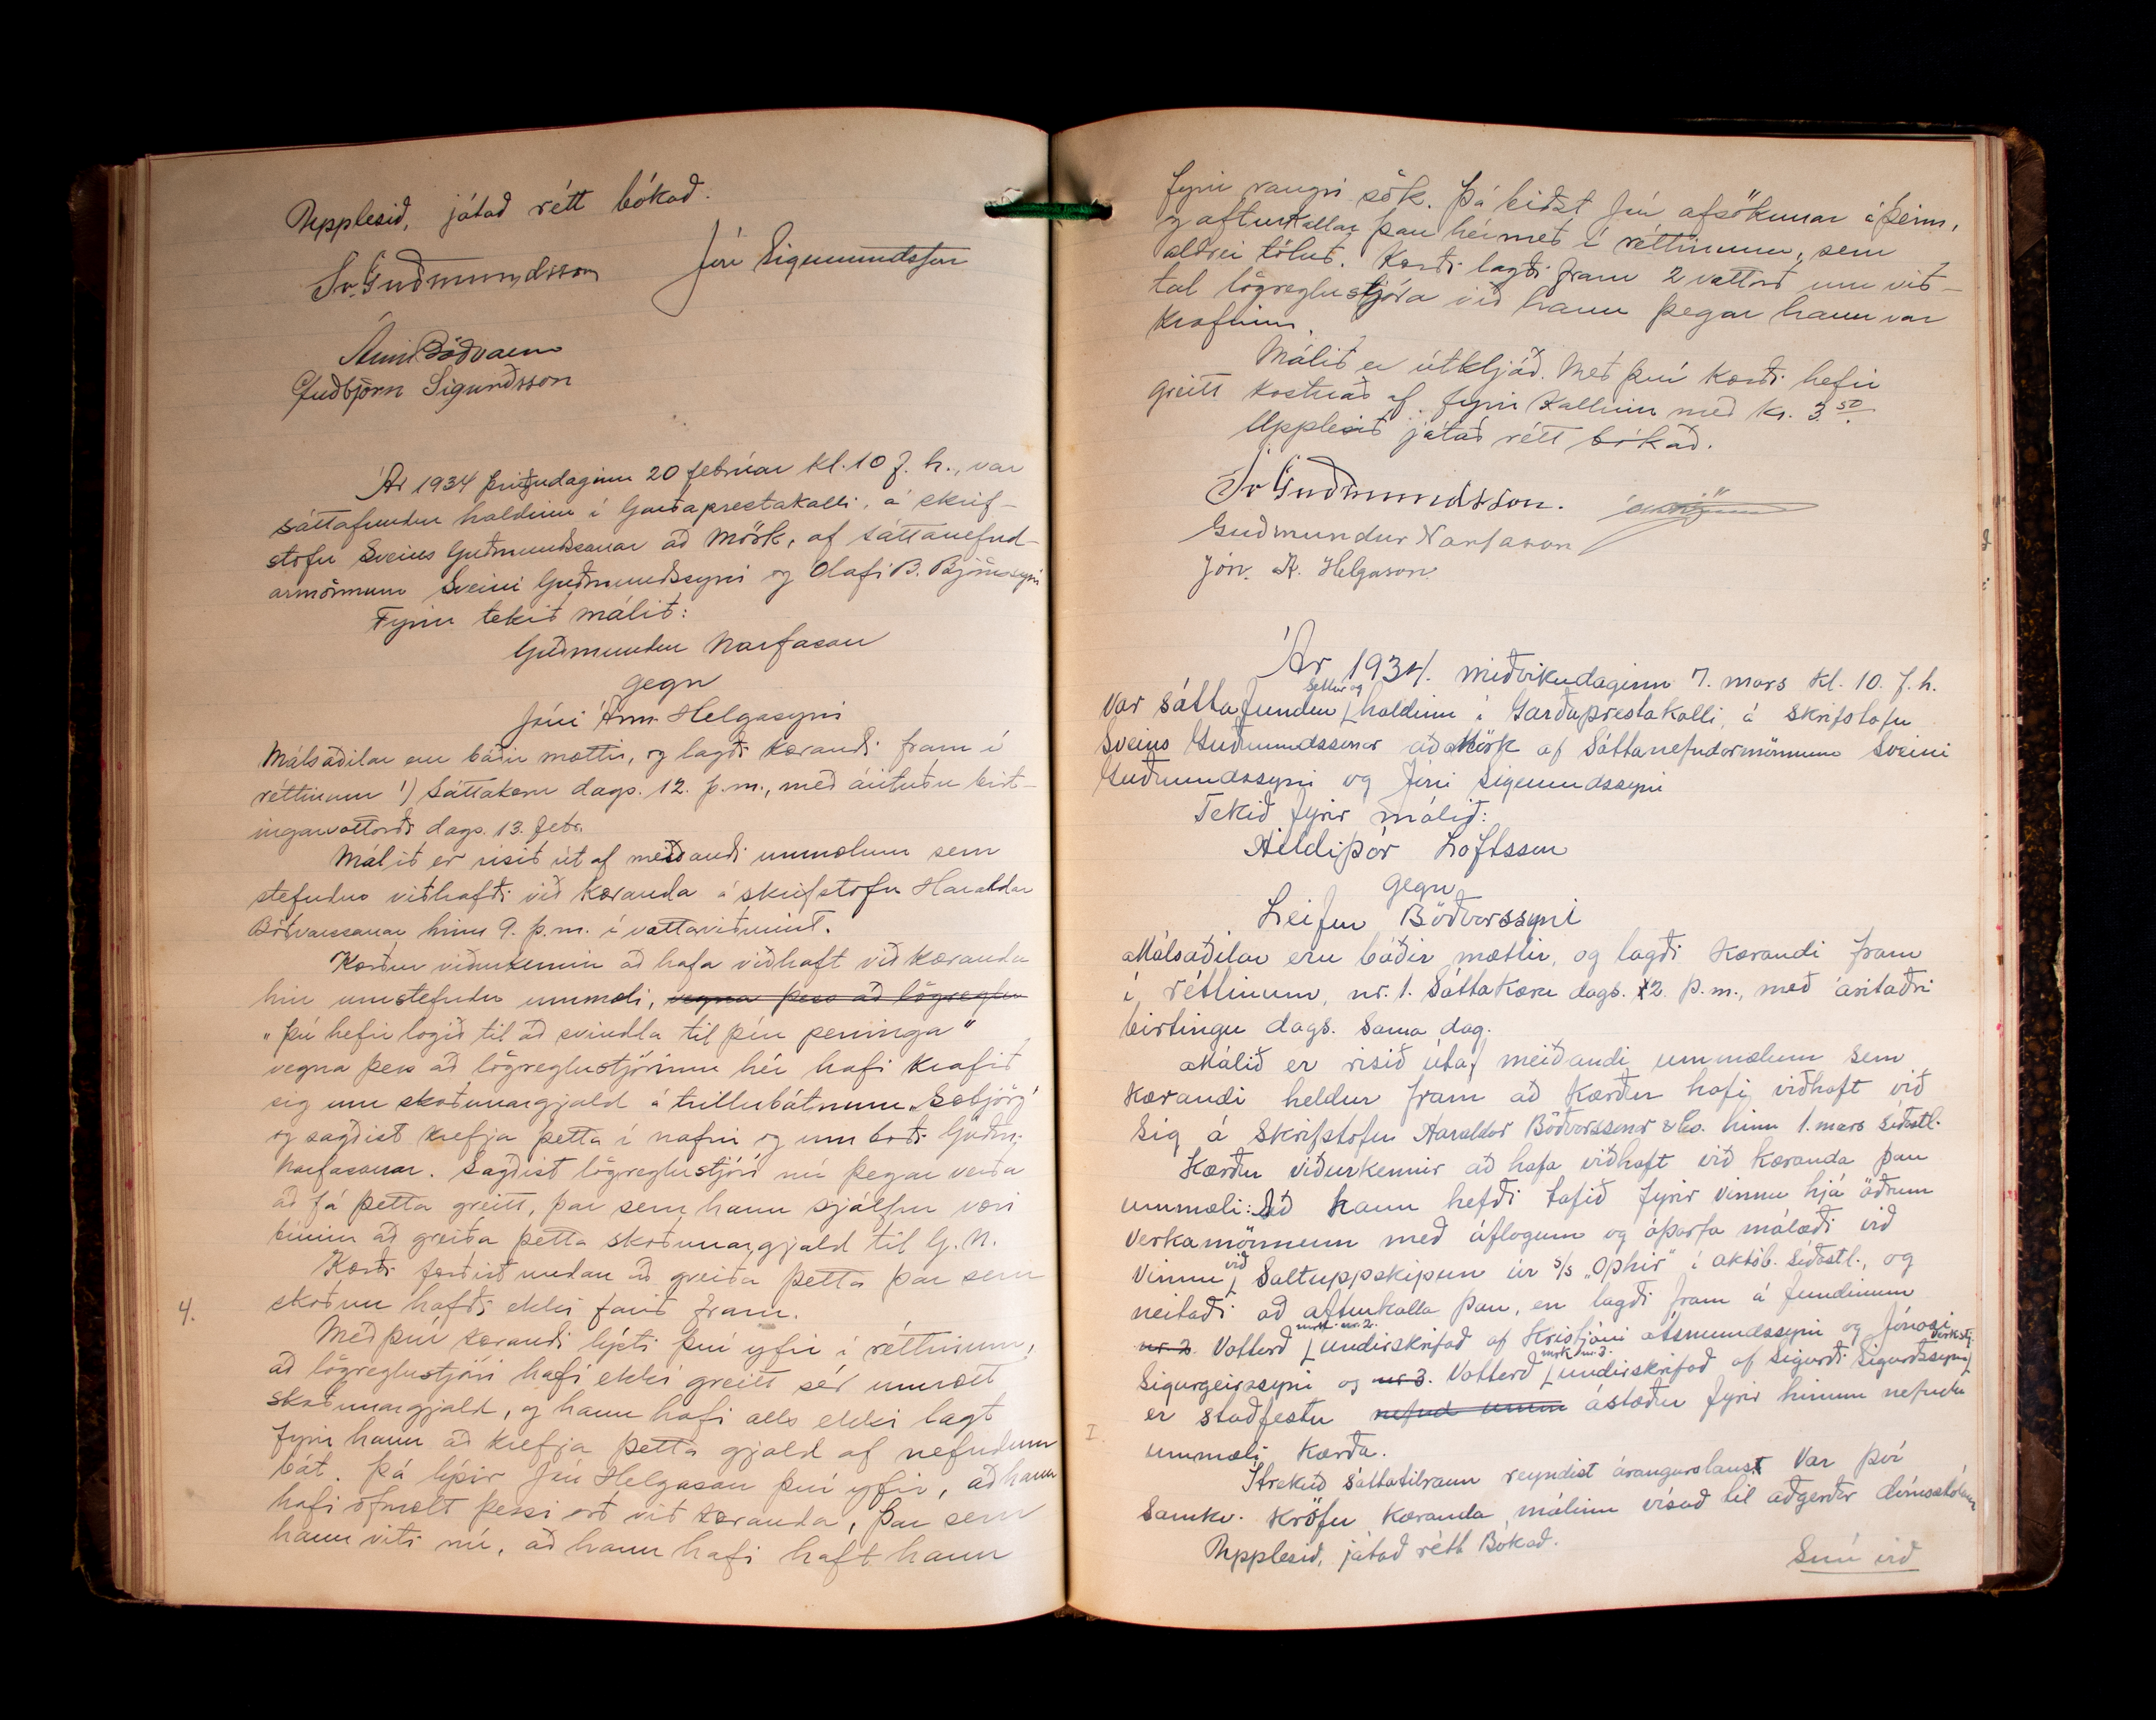 Upplesið, játað rétt bókað.
Sv. Guðmundsson Jón Sigmundsson
Árni Böðvarsson
Guðbjörn Sigurðsson
Ár 1934 þriðjudaginn 20 febrúar kl. 10 f. h., var
sáttafundur haldinn í Garðaprestakalli, á skrif-
stofu Sveins Guðmundssonar að Mörk, af sáttanefnd-
armönnum Sveini Guðmundssyni og Ólafi B. Björnssyni
Fyrir tekið málið:
Guðmundur Narfason
gegn
Jóni Árm. Helgasyni
Málsaðilar eru báðir mættir, og lagði kærandi fram í
réttinum 1) Sáttakæru dags. 12. þ.m., með árituðu birt-
ingarvottorði dags. 13. febr.
Málið er risið út af meiðandi ummælum sem
stefndur viðhafði við kæranda á skrifstofu Haraldar
Böðvarssonar hinn 9. þ.m. í vottaviðurvist.
Kærður viðurkennir að hafa viðhaft við kæranda
hin umstefndu ummæli, vegna þess að lögreglu
„þú hefir logið til að svindla til þín peninga"
vegna þess að lögreglustjórinn hér hafi krafið
sig um skoðunargjald á trillubátnum „Sæbjörg"
og sagðist krefja þetta í nafni og um boði Guðm.
Narfasonar. Sagðist lögreglustjóri nú þegar verða
að fá þetta greitt, þar sem hann sjálfur væri
búinn að greiða þetta skoðunargjald til G. N.
Kærði færðist undan að greiða þetta þar sem
skoðun hafði ekki farið fram.
4.
Með því kærandi lýsti því yfir í réttinum,
að lögreglustjóri hafi ekki greitt sér umrætt
skoðunargjald, og hann hafi alls ekki lagt
fyrir hann að krefja þetta gjald af nefndum
bát. Þá lýsir Jón Helgason því yfir, að hann
hafi ofmælt þessi orð við kæranda, þar sem
hann viti nú, að hann hafi haft hann
fyrir rangri sök. Þá biðst Jón afsökunar á þeim,
og afturkallar þau hérmeð í réttinum, sem
aldrei töluð. Kærði lagði fram 2 vottorð um við-
tal lögreglustjóra við hann þegar hann var
krafinn.
Málið er útkljáð. Með því kærði hefir
greitt kostnað af fyrir kallinu með kr. 3 50.
Upplesið játað rétt bókað.
Sv Guðmundsson.
Guðmundur Narfason
Jón. A. Helgason.
Ár 1934. miðvikudaginn 7. mars kl. 10. f. h.
Var sáttafundur settur og haldinn í Garðaprestakalli, á skrifstofu
Sveins Guðmundssonar að Mörk af Sáttanefndarmönnum Sveini
Guðmundssyni og Jóni Sigmundssyni
Tekið fyrir málið:
Hildiþór Loftsson
gegn
Leifur Böðvarssyni
Málsaðilar eru báðir mættir, og lagði kærandi fram
í réttinum, nr. 1. Sáttakæru dags. 2. þ.m., með áritaðri
birtingu dags. sama dag.
Málið er risið útaf meiðandi ummælum sem
kærandi heldur fram að kærður hafi viðhaft við
sig á skrifstofu Haraldar Böðvarssonar & Co. hinn 1. mars síðastl.
Kærður viðurkennir að hafa viðhaft við kæranda þau
ummæli: Að hann hefði tafið fyrir vinnu hjá öðrum
verkamönnum með áflogum og óþarfa málæði við
vinnu við Saltuppskipun úr s/s „Ophir" í októb. síðastl., og
neitaði að afturkalla þau, en lagði fram á fundinum
nr 2. Vottorð mrkt. nr. 2. undirskrifað af Kristjáni Ásmundssyni og Jónasi
Sigurgeirssyni og nr 3. Vottorð mrk nr 3. undirskrifað af Sigurði Sigurðssyni verkstj.
er staðfestu nefnd umm ástæður fyrir hinum nefndu
I.
ummæli kærða.
Ítrekuð sáttatilraun reyndist árangurslaus. Var því
samkv. kröfu kæranda, málinu vísað til aðgerðir dómstólanna
Upplesið, játað rétt Bókað.
Snú við